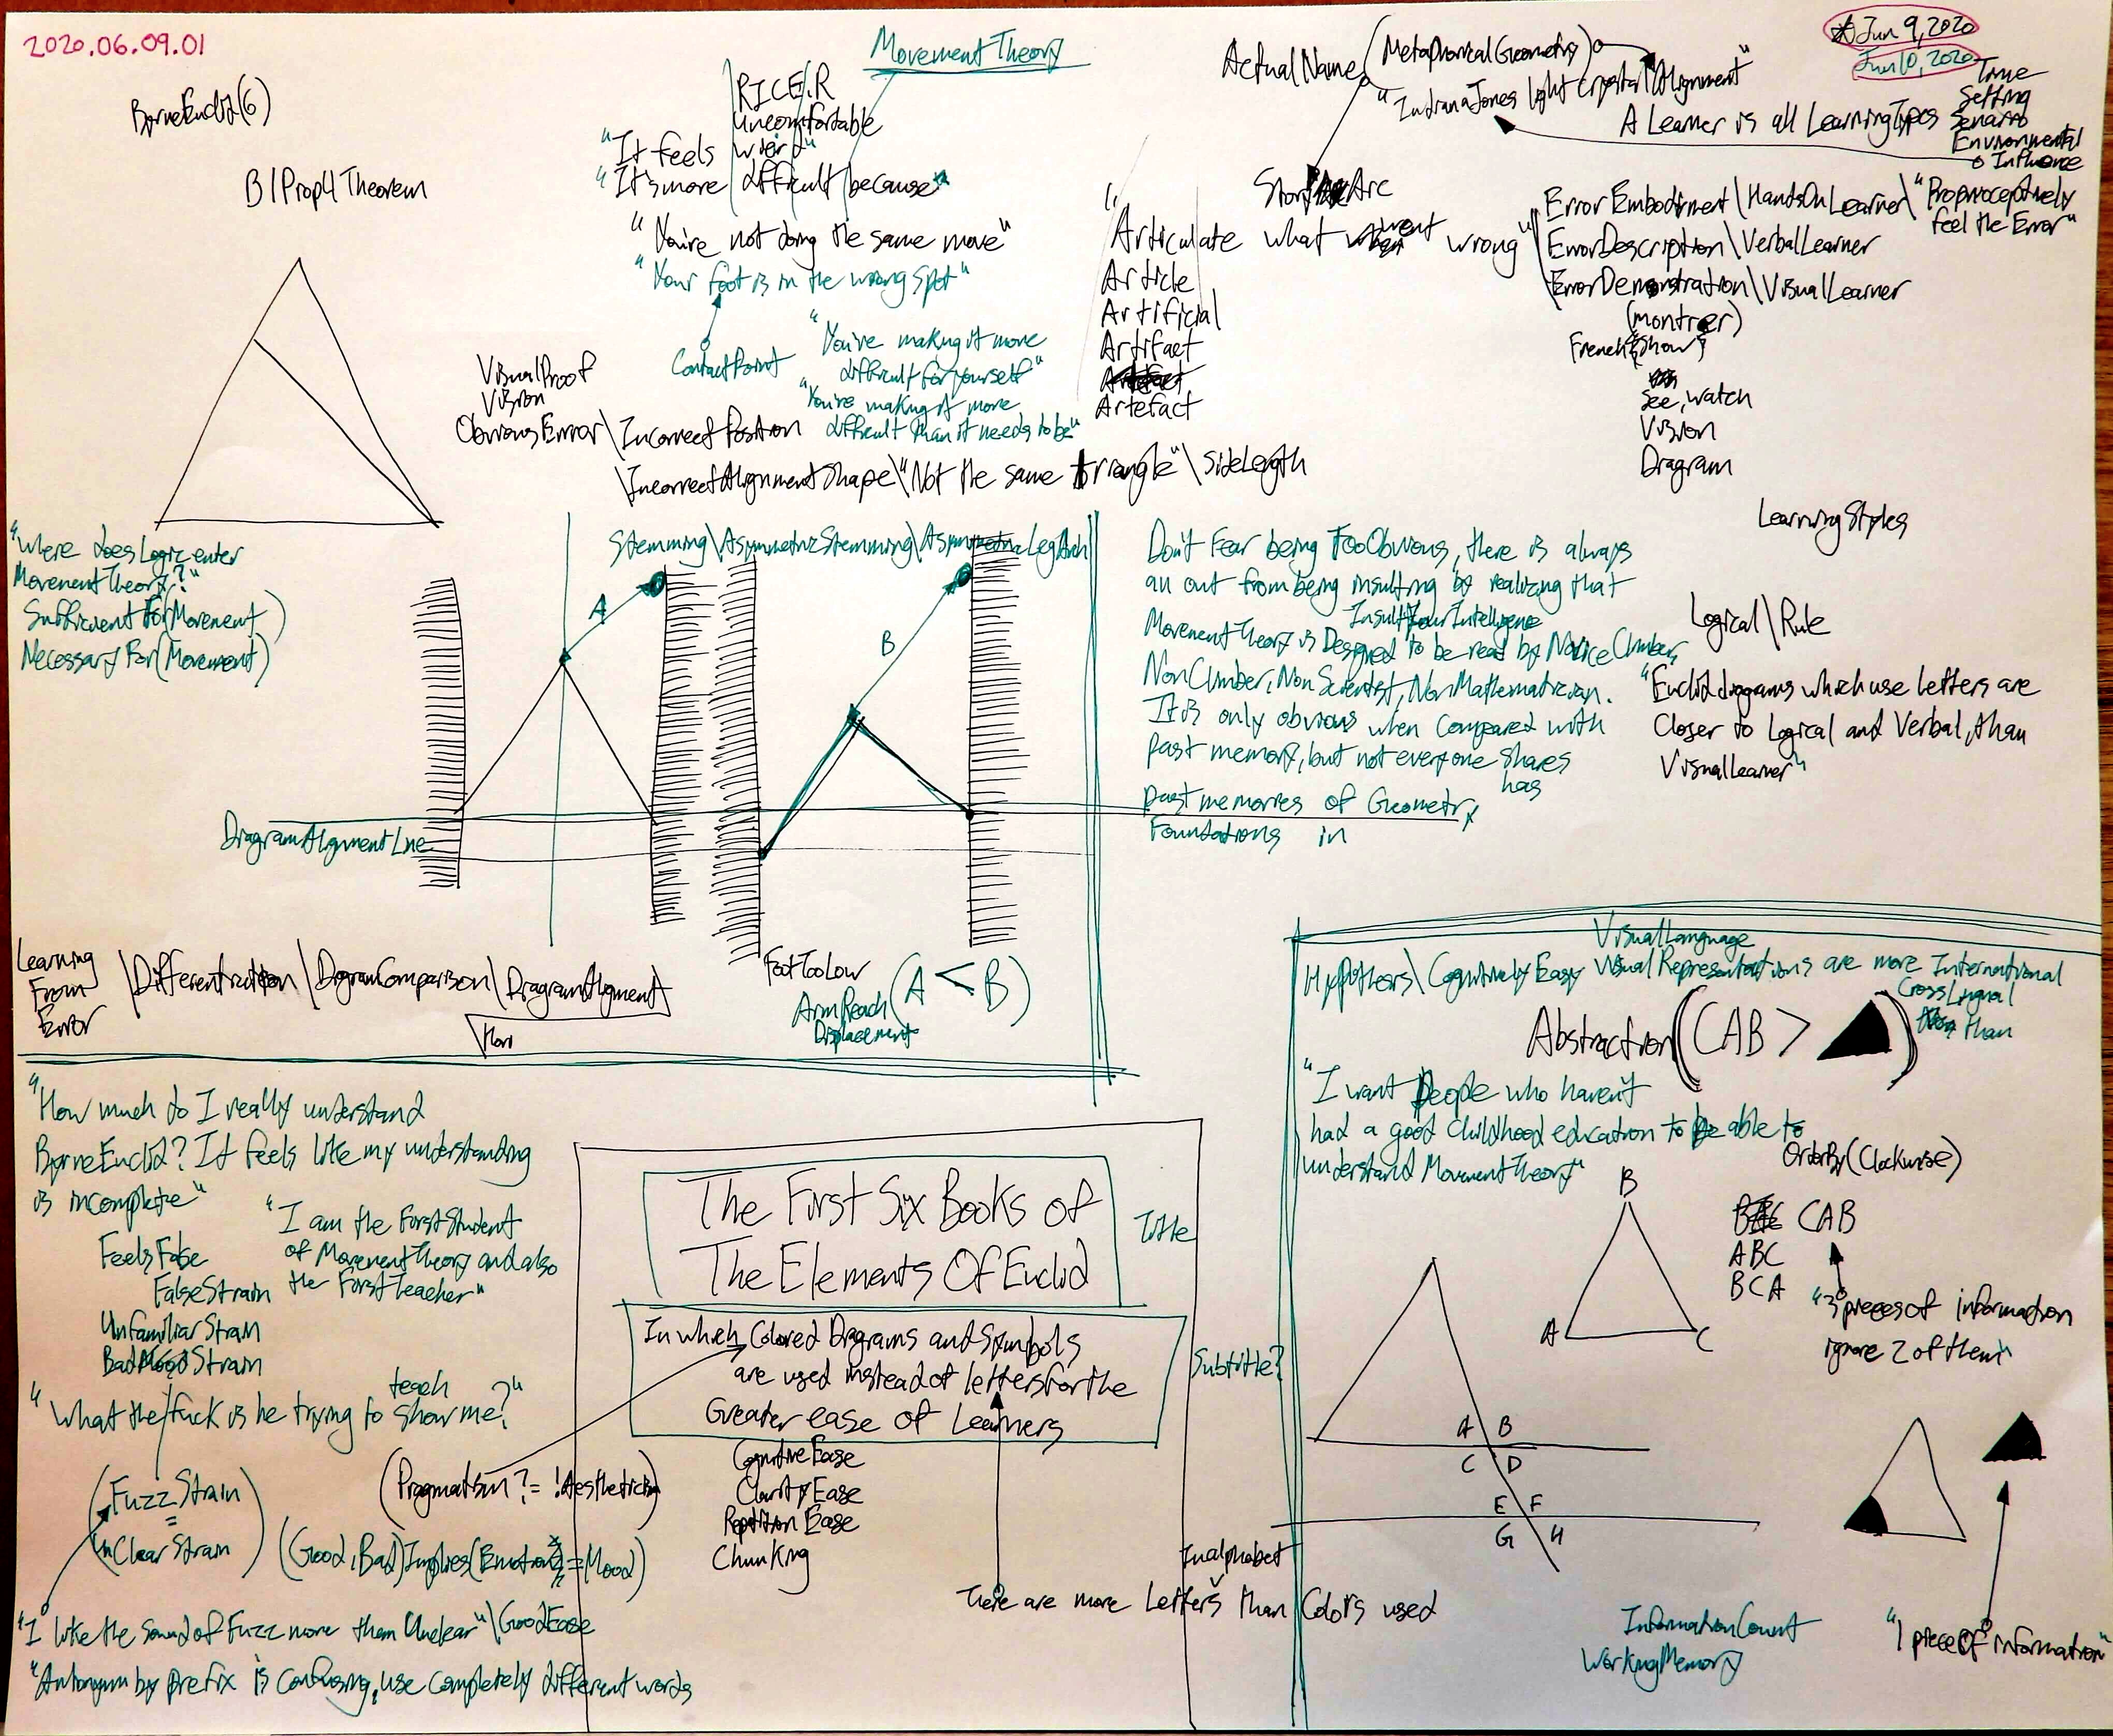 2020.06.09.01
Movement Theory
ByrneEuclid(6)
B1Prop4Theorem
RICE/.R
Uncomfortable
"It feels wierd"
"It's more difficult because"
"You're not doing the same move"
"Your foot is in the wrong spot"
ContactPoint
"You're making it more
difficult for yourself"
"You're making it more
difficult than it needs to be"
VisualProof
Vision
ObviousError\IncorrectPosition
\IncorrectAlignmentShape\"Not the same triangle"\SideLength
ActualName(MetaphoricalGeometry)
"IndianaJones Light Crystal Alignment"
Jun 9, 2020
Jun 10, 2020
Time
Setting
Senario
Environmental
Influence
A Learner is all LearningTypes
Story Arc
"Articulate what went wrong"
Article
Artificial
Artifact
Artefact
ErrorEmbodiment\HandsOnLearner\"Proprioceptively
feel the Error"
ErrorDescription\VerbalLearner
ErrorDemonstration\VisualLearner
(montrer)
French{Show}
See, watch
Vision
Diagram
LearningStyles
Logical\Rule
"Euclid diagrams which use letters are
Closer to Logical and Verbal, than
VisualLearner"
"Where does Logic enter
MovementTheory?"
Sufficient For(Movement)
Necessary For(Movement)
Stemming\AsymmetricStemming\AsymmetricLegArch
A
B
DiagramAlignmentLine
Don't Fear being TooObvious, there is always
an out from being insulting by realizing that
InsultYourIntelligence
MovementTheory is Designed to be read by NoviceClimber,
NonClimber, NonScientist, NonMathematician.
It is only obvious when compared with
past memory, but not everyone shares
has
past memories of Geometry
Foundations in
Learning
From
Error
\Differentiation\DiagramComparison\DiagramAlignment
\Hori
FootTooLow
ArmReach(A < B)
Displacement
VisualLanguage
Hypothesis\Cognitively Easy Visual Representations are more International
CrossLingual
than
Abstraction(CAB > )
"I want People who haven't
had a good childhood education to be able to
understand MovementTheory"
OrderBy(Clockwise)
B
A
C
CAB
ABC
BCA
"3 pieces of information
ignore 2 of them"
A B
C D
E F
G H
InformationCount
WorkingMemory
"1 piece of information"
"How much do I really understand
ByrneEuclid? It feels like my understanding
is incomplete"
Feels False
FalseStrain
UnfamiliarStrain
BadMoodStrain
"I am the First Student
of MovementTheory and also
the First Teacher"
teach
"What the fuck is he trying to show me?"
(FuzzStrain
=
UnClearStrain)
(Pragmatism ?= !Aesthetics)
(Good, Bad)Implies(Emotion = Mood)
"I like the sound of Fuzz more than Unclear"\GoodEase
"Antonym by prefix is confusing, use completely different words
The First Six Books of
The Elements Of Euclid
Title
In which Colored Diagrams and Symbols
are used instead of letters for the
Greater ease of Learners
Subtitle?
CognitiveEase
ClarityEase
Repetition Ease
Chunking
In alphabet
There are more Letters than Colors used